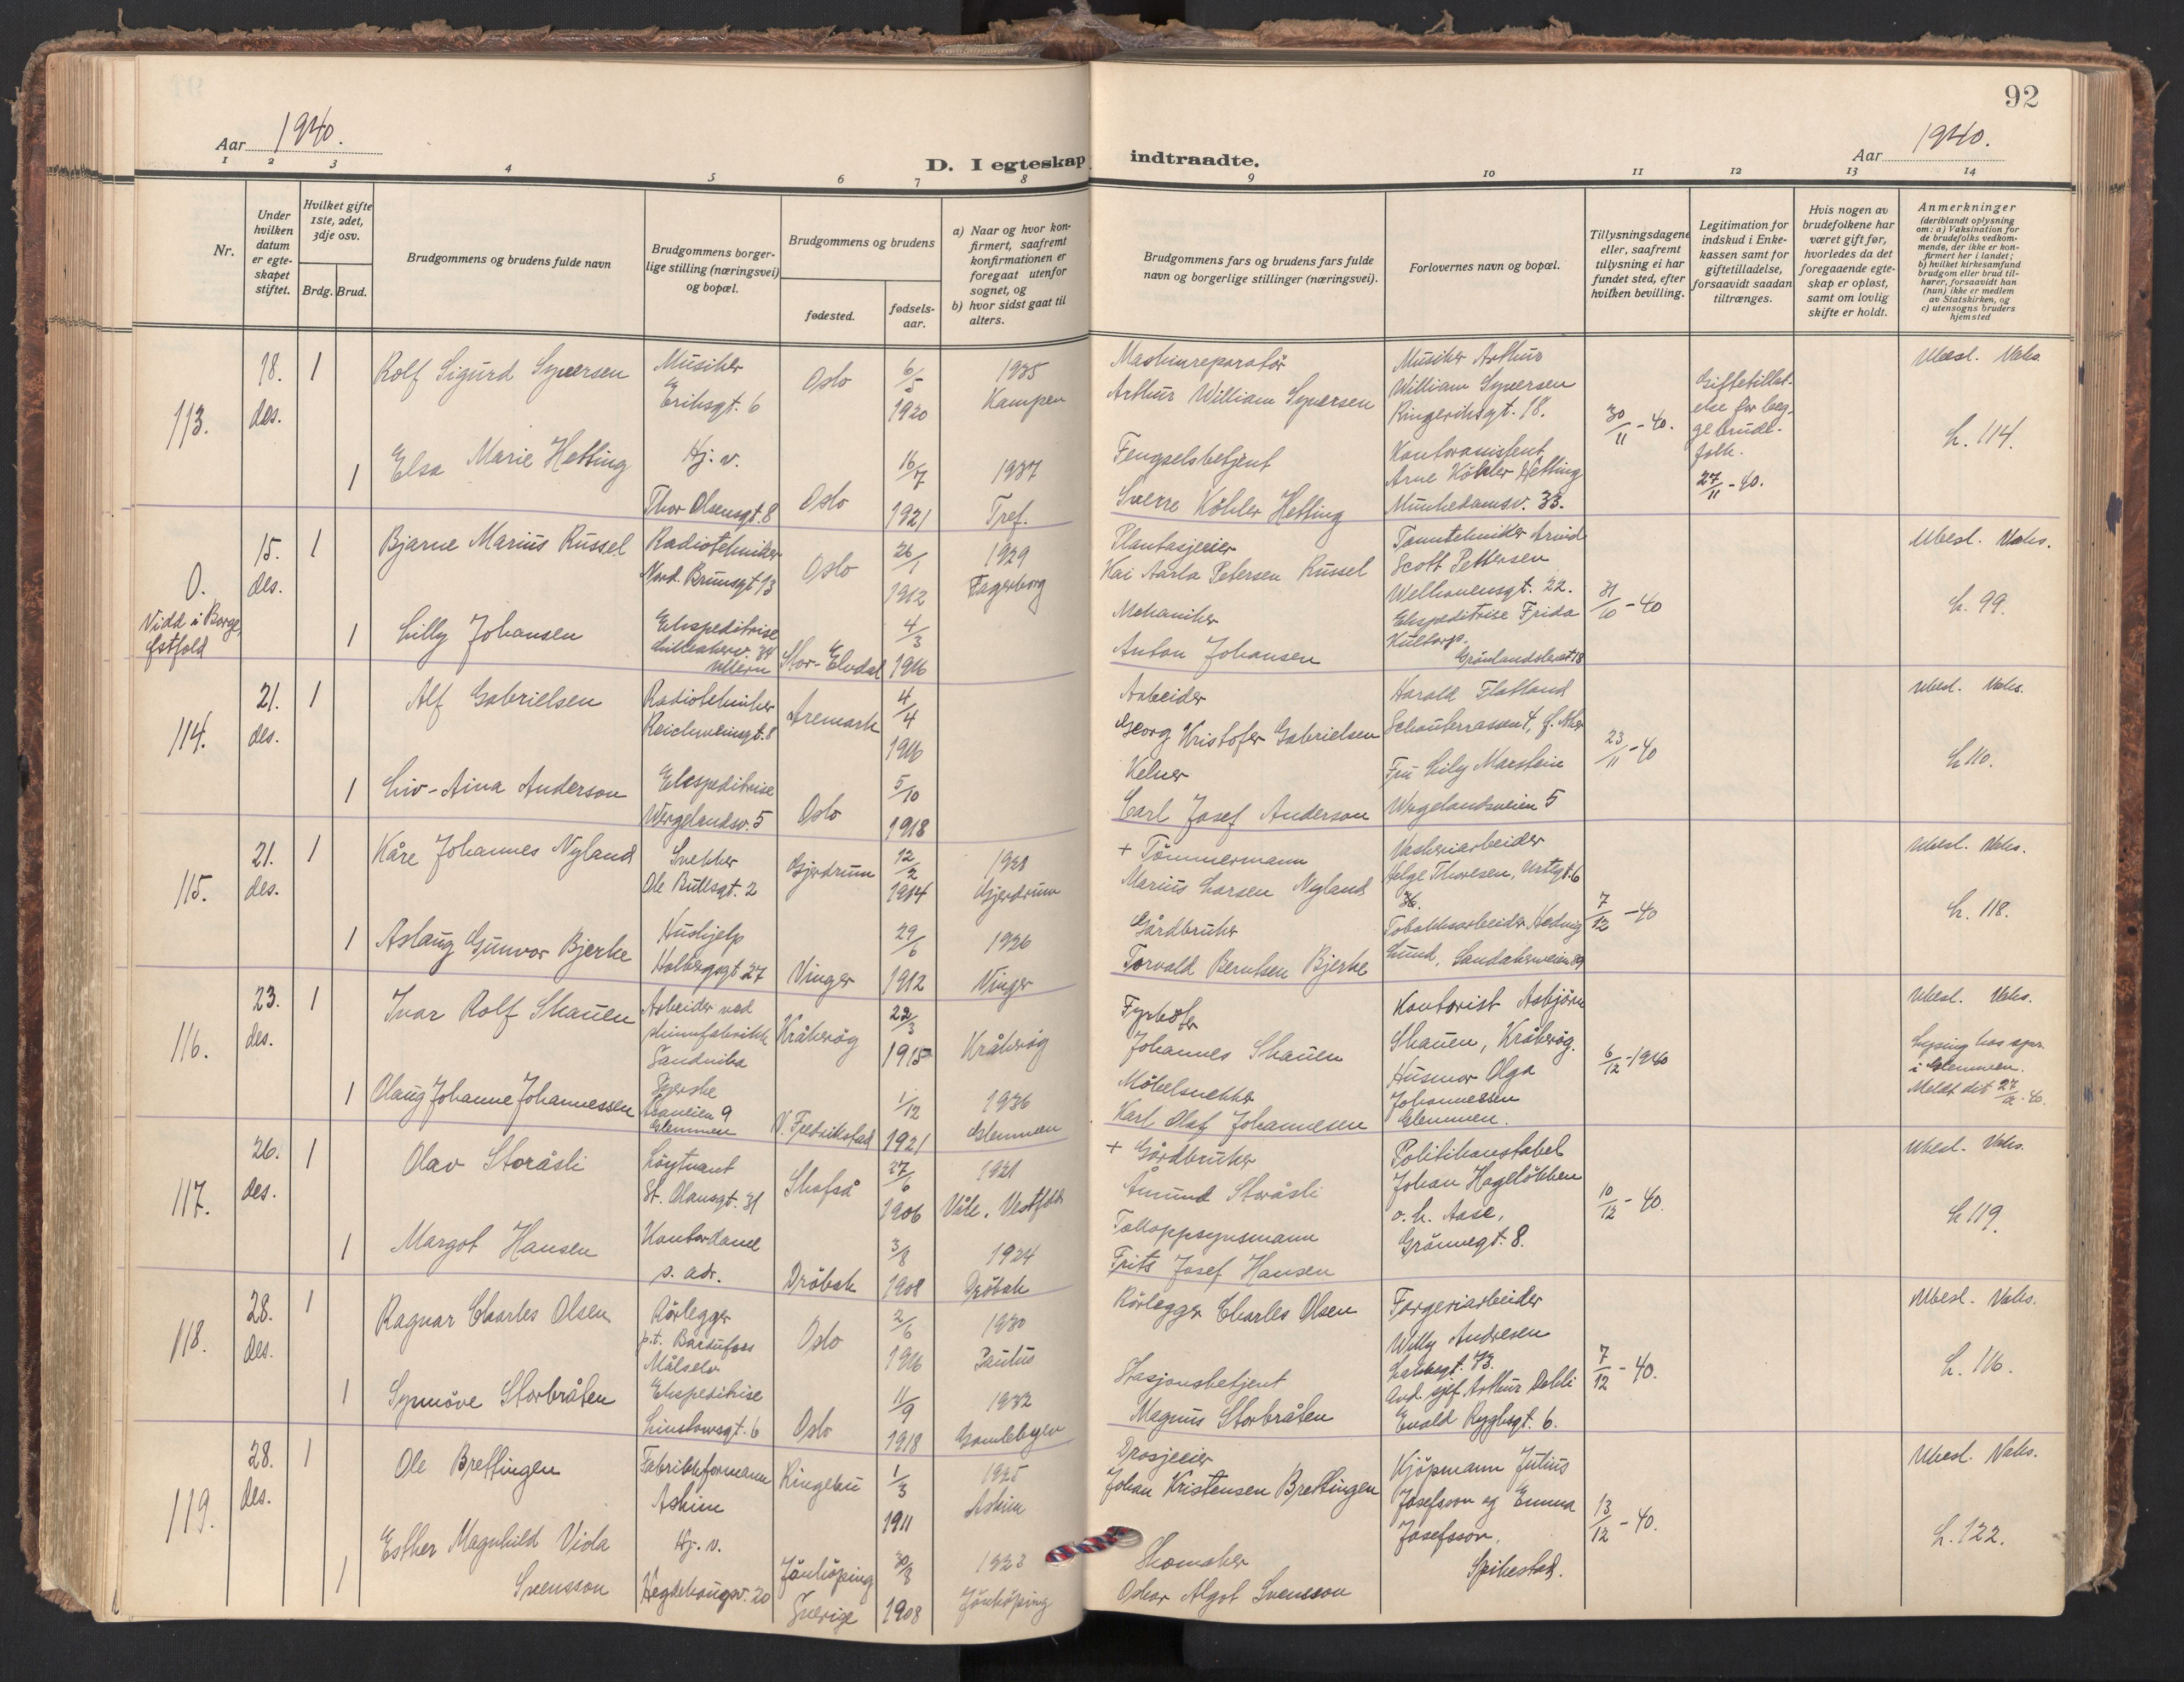 92
Aar 1940.
D. I egteskap indtraadte.
Aar 1940.
1 2 3 4 5 6 7 8 9 10 11 12 13 14
Nr.
Under hvilken datum er egteskapet stiftet.
Hvilket gifte 1ste, 2det, 3dje osv.
Brdg. Brud.
Brudgommens og brudens fulde navn
Brudgommens borgerlige stilling (næringsvei) og bopæl.
Brudgommens og brudens
fødested.
fødselsaar.
a) Naar og hvor konfirmert, saafremt konfirmationen er foregaat utenfor sognet, og
b) hvor sidst gaat til alters.
Brudgommens fars og brudens fars fulde navn og borgerlige stillinger (næringsvei).
Forlovernes navn og bopæl.
Tillysningsdagene eller, saafremt tillysning ei har fundet sted, efter hvilken bevilling.
Legitimation for indskud i Enkekassen samt for giftetilladelse, forsaavidt saadan tiltrænges.
Hvis nogen av brudefolkene har været gift før, hvorledes da det foregaaende egteskap er opløst, samt om lovlig skifte er holdt.
Anmerkninger
(deriblandt oplysning om: a) Vaksination for de brudefolks vedkommende, der ikke er konfirmert her i landet; b) hvilket kirkesamfund brudgom eller brud tilhører, forsaavidt han (hun) ikke er medlem av Statskirken, og c) utensogns bruders hjemsted
113.
18. des.
1
Rolf Sigurd Syversen
Musiker
Eriksgt. 6
Oslo
6/5 1920
1935
Kampen
Maskinreparatör
Arthur William Syversen
Musiker Arthur
William Syversen
Ringeriksgt. 18.
30/11 - 40.
Giftetillat-
else for beg-
ge brude-
folk.
27/11 - 40.
Ubesl. Vaks.
L. 114.
1
Elsa Marie Hetting
Hj. v.
Thor Olsensgt. 8
Oslo
16/7 1921
1937
Tref.
Fengselsbetjent
Sverre Köhler Hetting
Kontorassistent
Arne Köhler Hetting
Munkedamsv. 33.
O.
Vidd i Borge,
Östfold
15. des.
1
Bjarne Marius Russel
Radiotekniker
Nord. Brunsgt 13
Oslo
26/1 1912
1929
Fagerborg
Plantasjeeier
Kai Aarla Petersen Russel
Tanntekniker Arvid
Scott Pettersen
Welhavensgt. 22.
31/10 - 40
Ubesl. Vaks.
L. 99.
1
Lilly Johansen
Ekspeditrise
Lilleakerv. 34
Ullern
Stor-Elvdal
4/3 1916
Mekaniker
Anton Johansen
Ekspeditrise Frida
Kultorp.
Grönlandsleret 18
114.
21. des.
1
Alf Gabrielsen
Radiotekniker
Reichweinsgt. 8
Aremark
4/4 1916
Arbeider
Georg Kristofer Gabrielsen
Harald Flatland
23/11 - 40
Ubesl. Vaks.
L 110.
1
Liv-Aina Anderson
Ekspeditrise
Wergelandsv. 5
Oslo
5/10 1918
Kelner
Carl Josef Anderson
Fru Lily Marstein
Wergelandsveien 5
115.
21. des.
1
Kåre Johannes Nyland
Snekker
Ole Bullsgt. 2
Gjerdrum
12/2 1914
1928
Gjerdrum
+ Tömmermann
Marius Larsen Nyland
Vaskeriarbeider
Helge Thoresen, Urtegt. 6
7/12 - 40
Ubesl. Vaks.
L. 118.
1
Aslaug Gunvor Bjerke
Hushjelp
Holbergsgt 27
Vinger
29/6 1912
1926
Vinger
Gårdbruker
Torvald Berntsen Bjerke
Tobakksarbeider Hedvig
Lund, Sandakerveien 89
116.
23. des.
1
Ivar Rolf Skauen
Arbeider ved
skinnfabrikk
Sandvika
Kråkeröy
22/3 1915
Kråkeröy
Fyrböter
Johannes Skauen
Kontorist Asbjörn
Skauen, Kråkeröy.
6/12-1940
Ubesl. Vaks.
Lysing hos spr.
i Glemmen.
Meldt dit 27/12 - 40.
1
Olaug Johanne Johannessen
Syerske
Glemmen
V. Fredrikstad
1/12 1921
1936
Glemmen
Möbelsnekker
Karl Olaf Johannesen
Husmor Olga
Johannessen
Glemmen.
117.
26. des.
1
Olav Storåsli
Löytnant
St. Olavsgt. 31
Skafså
27/6 1906
1921
Våle, Vestfold
+ Gårdbruker
Åmund Storåsli
Politikonstabel
Johan Hagelökken
o. h. Aase,
Grönnegt. 8.
10/12 - 40.
Ubesl. Vaks.
L 119.
1
Margot Hansen
Kontordame
s. adr.
Dröbak
3/8 1908
1924
Dröbak
Tolloppsynsmann
Frits Josef Hansen
118.
28. des.
1
Ragnar Charles Olsen
Rörlegger
p.t. Bardufoss
Målselv
Oslo
2/6 1916
1930
Paulus
Rörlegger Charles Olsen
Fargeriarbeider
Willy Andresen
7/12 - 40.
Ubesl. Vaks.
L. 116.
1
Synnöve Storbråten
Ekspeditrise
Linstowsgt. 6
Oslo
11/9 1918
1932
Gamlebyen
Stasjonsbetjent
Magnus Storbråten
Avd. sjef Arthur Dahli
Evald Ryghsgt. 6.
119.
28. des.
1
Ole Brettingen
Fabrikkformann
Askim
Ringebu
1/3 1911
1925
Askim
Drosjeeier
Johan Kristensen Brettingen
Kjöpmann Julius
Josefsson og Emma
Josefsson,
Spikestad.
13/12 - 40.
Ubesl. Vaks.
L. 122.
1
Esther Magnhild Viola
Svensson
Hj. v.
Hegdehaugsv. 20
Jönköping
Sverige
30/8 1908
1923
Jönköping
Skomaker
Oskar Algot Svensson